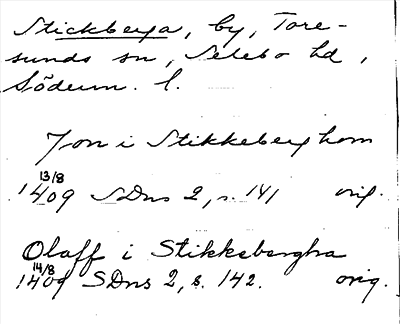 Stickberga, by, Tore-
sunds sn, Selebo hd,
Söderm. l.
Jon i Stikkeberghom
13/8
1409 SDns 2, s. 141 orig.
Olaff i Stikkobergha
14/8
1409 SDns 2, s. 142. orig.